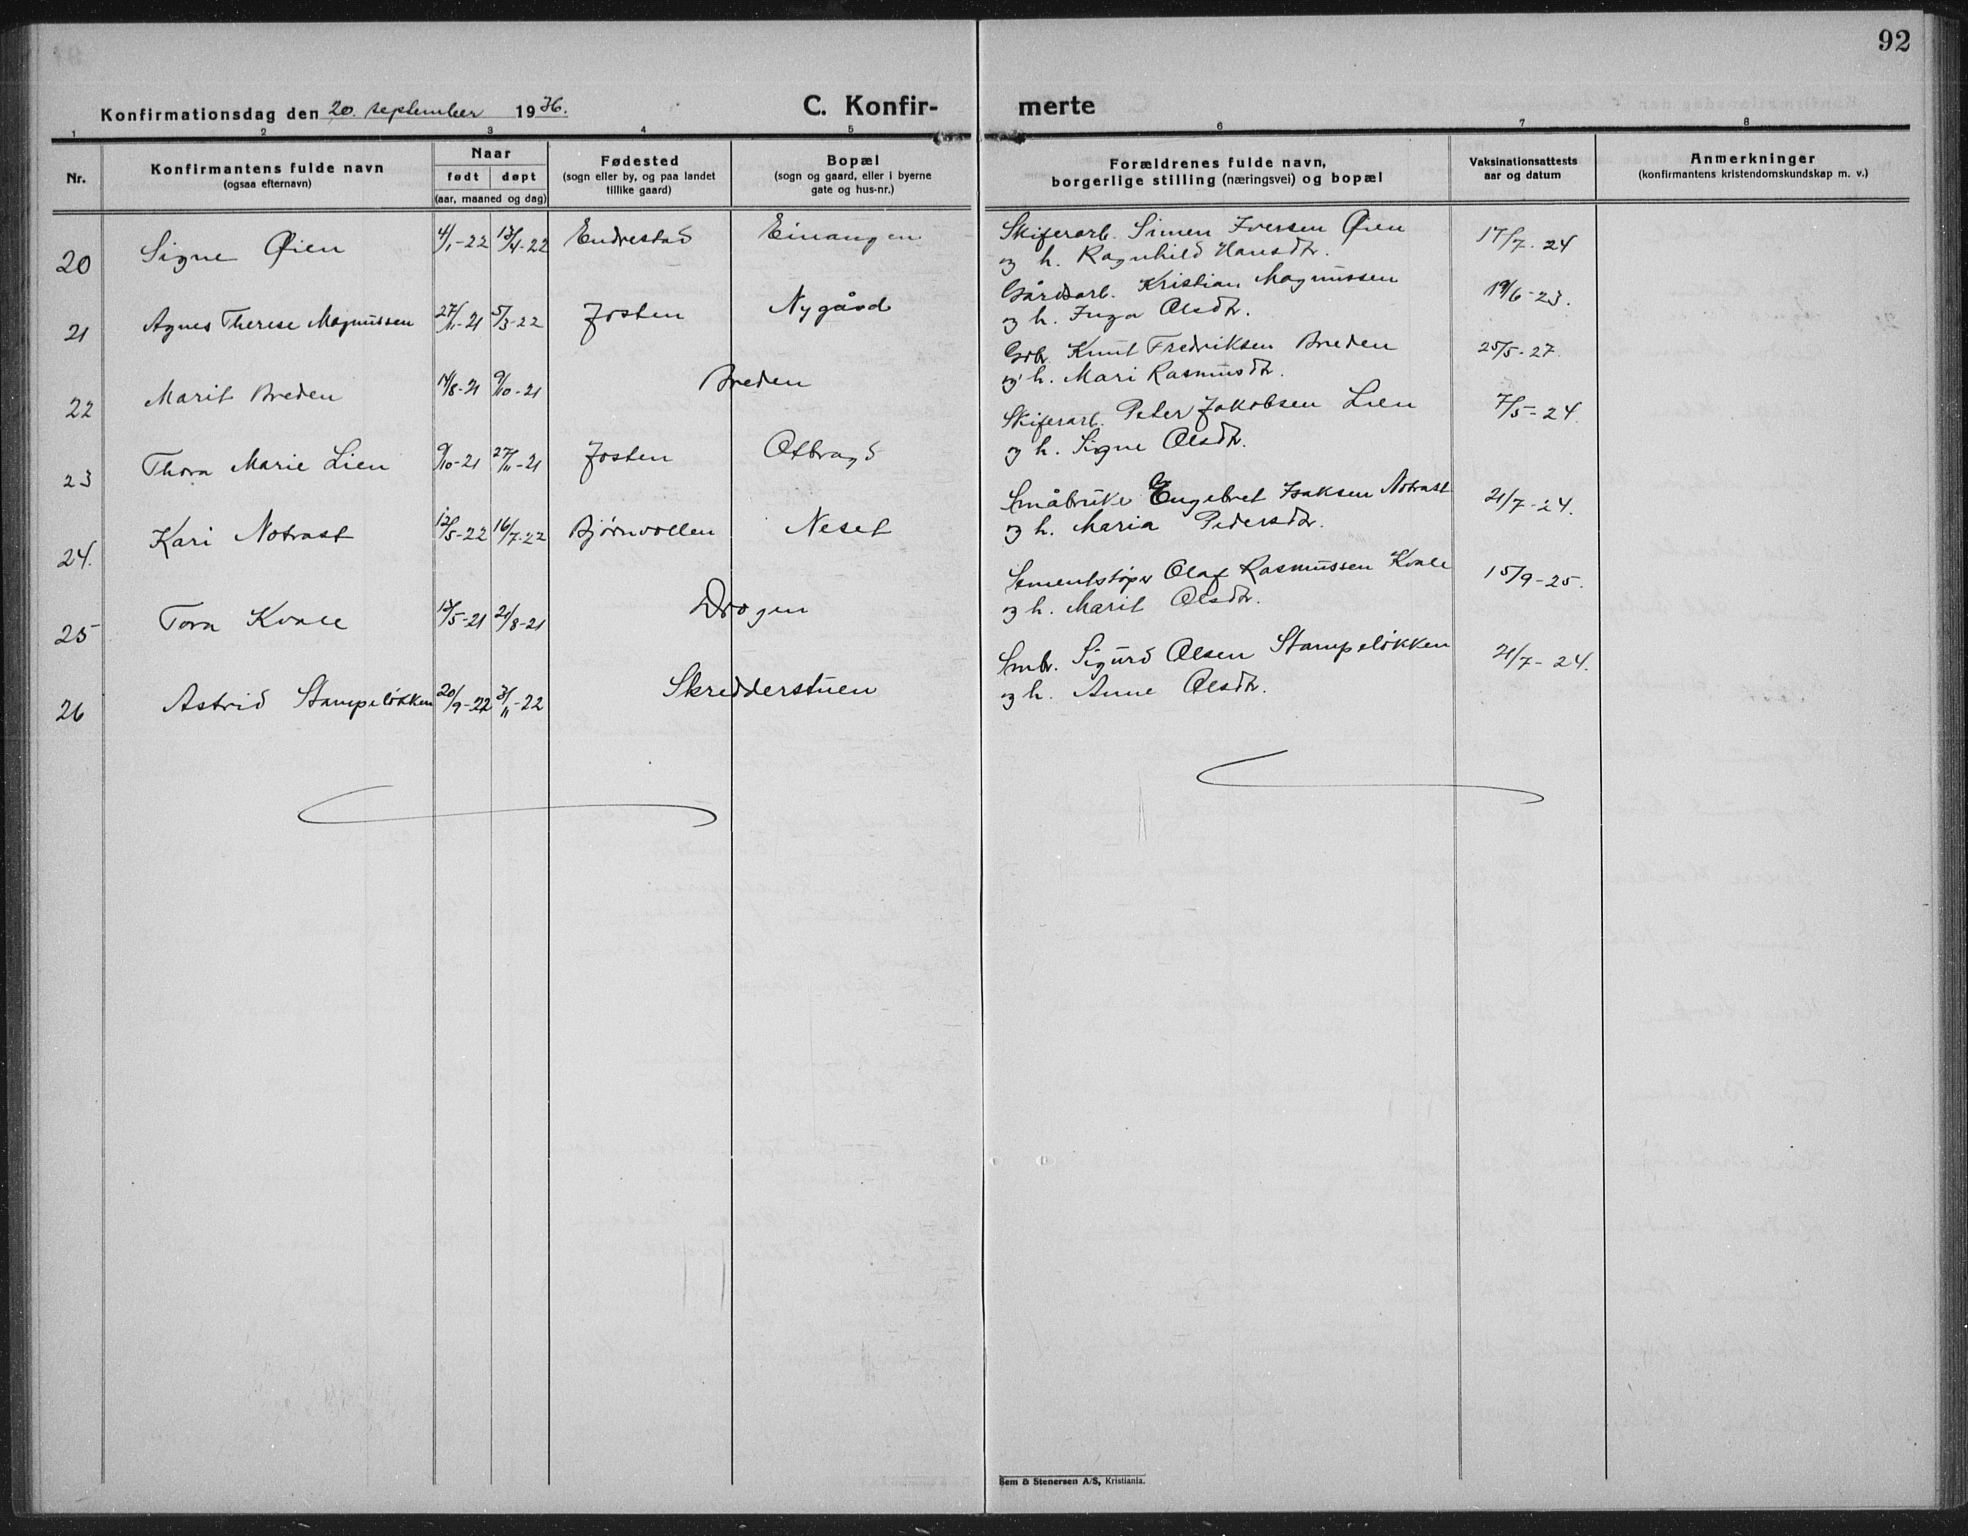 92
Konfirmationsdag den 20. september 1936.
C. Konfir-
merte
1 2 3 4 5 6 7 8
Nr.
Konfirmantens fulde navn
(ogsaa efternavn)
Naar
født døpt
(aar, maaned og dag)
Fødested
(sogn eller by, og paa landet
tillike gaard)
Bopæl
(sogn og gaard, eller i byerne
gate og hus-nr.)
Forældrenes fulde navn,
borgerlige stilling (næringsvei) og bopæl
Vaksinationsattests
aar og datum
Anmerkninger
(konfirmantens kristendomskundskap m. v.)
20 Signe Øien 4/1-22 13/4-22 Endrestad Einangen Skiferarb. Simen Iversen Øien 17/7-24
og h. Ragnhild Hansdtr.
21 Agnes Therese Magnussen 27/11-21 5/3-22 Josten Nygård Gårdsarb. Kristian Magnussen 19/6-23.
og h. Inga Olsdtr.
22 Marit Breden 14/8-21 9/10-21 Breden Gbr. Knut Fredriksen Breden 25/5-27.
og h. Mari Rasmusdtr.
23 Thora Marie Lien 9/10-21 27/11-21 Josten Ofbragd Skiferarb. Peter Jakobsen Lien 7/5-24.
og h. Signe Olsdtr.
24. Kari Notrast 12/5-22 16/7-22 Bjørnvollen Neset Småbruke Engebret Isaksen Notrast 21/7-24.
og h. Maria Pedersdtr.
25 Tora Kvale 12/5-21 21/8-21 Drogen Sementstøper Olaf Rasmussen Kvale 15/9-25.
og h. Marit Olsdtr.
26 Astrid Stampeløkken 20/9-22 3/11-22 Skredderstuen Smbr. Sigurd Olsen Stampeløkken 21/7-24.
og h. Anne Olsdtr.
Sem & Stenersen A/S, Kristiania.